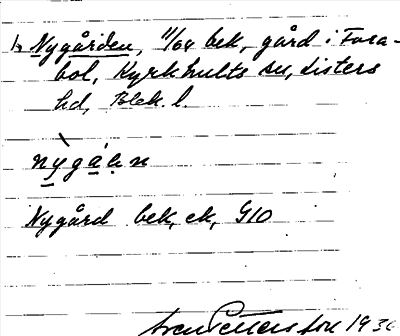 ½ Nygården, 11/64 bek, gård i Fara-
bol, Kyrkhults sn, Listers
hd, Blek. l.
nỳgá̤ɐn
Nygård bek, ek, G10
Sven Pettersson 1930